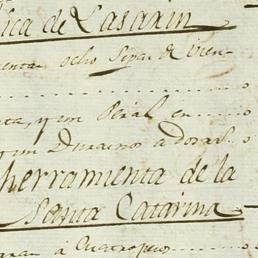 ica de Lasarin
enta ocho Sepas de vien-
ta, y un Peral en
y un Durasno a dosal..
herramienta de la
Santa Catarina
a Cuatro pesos